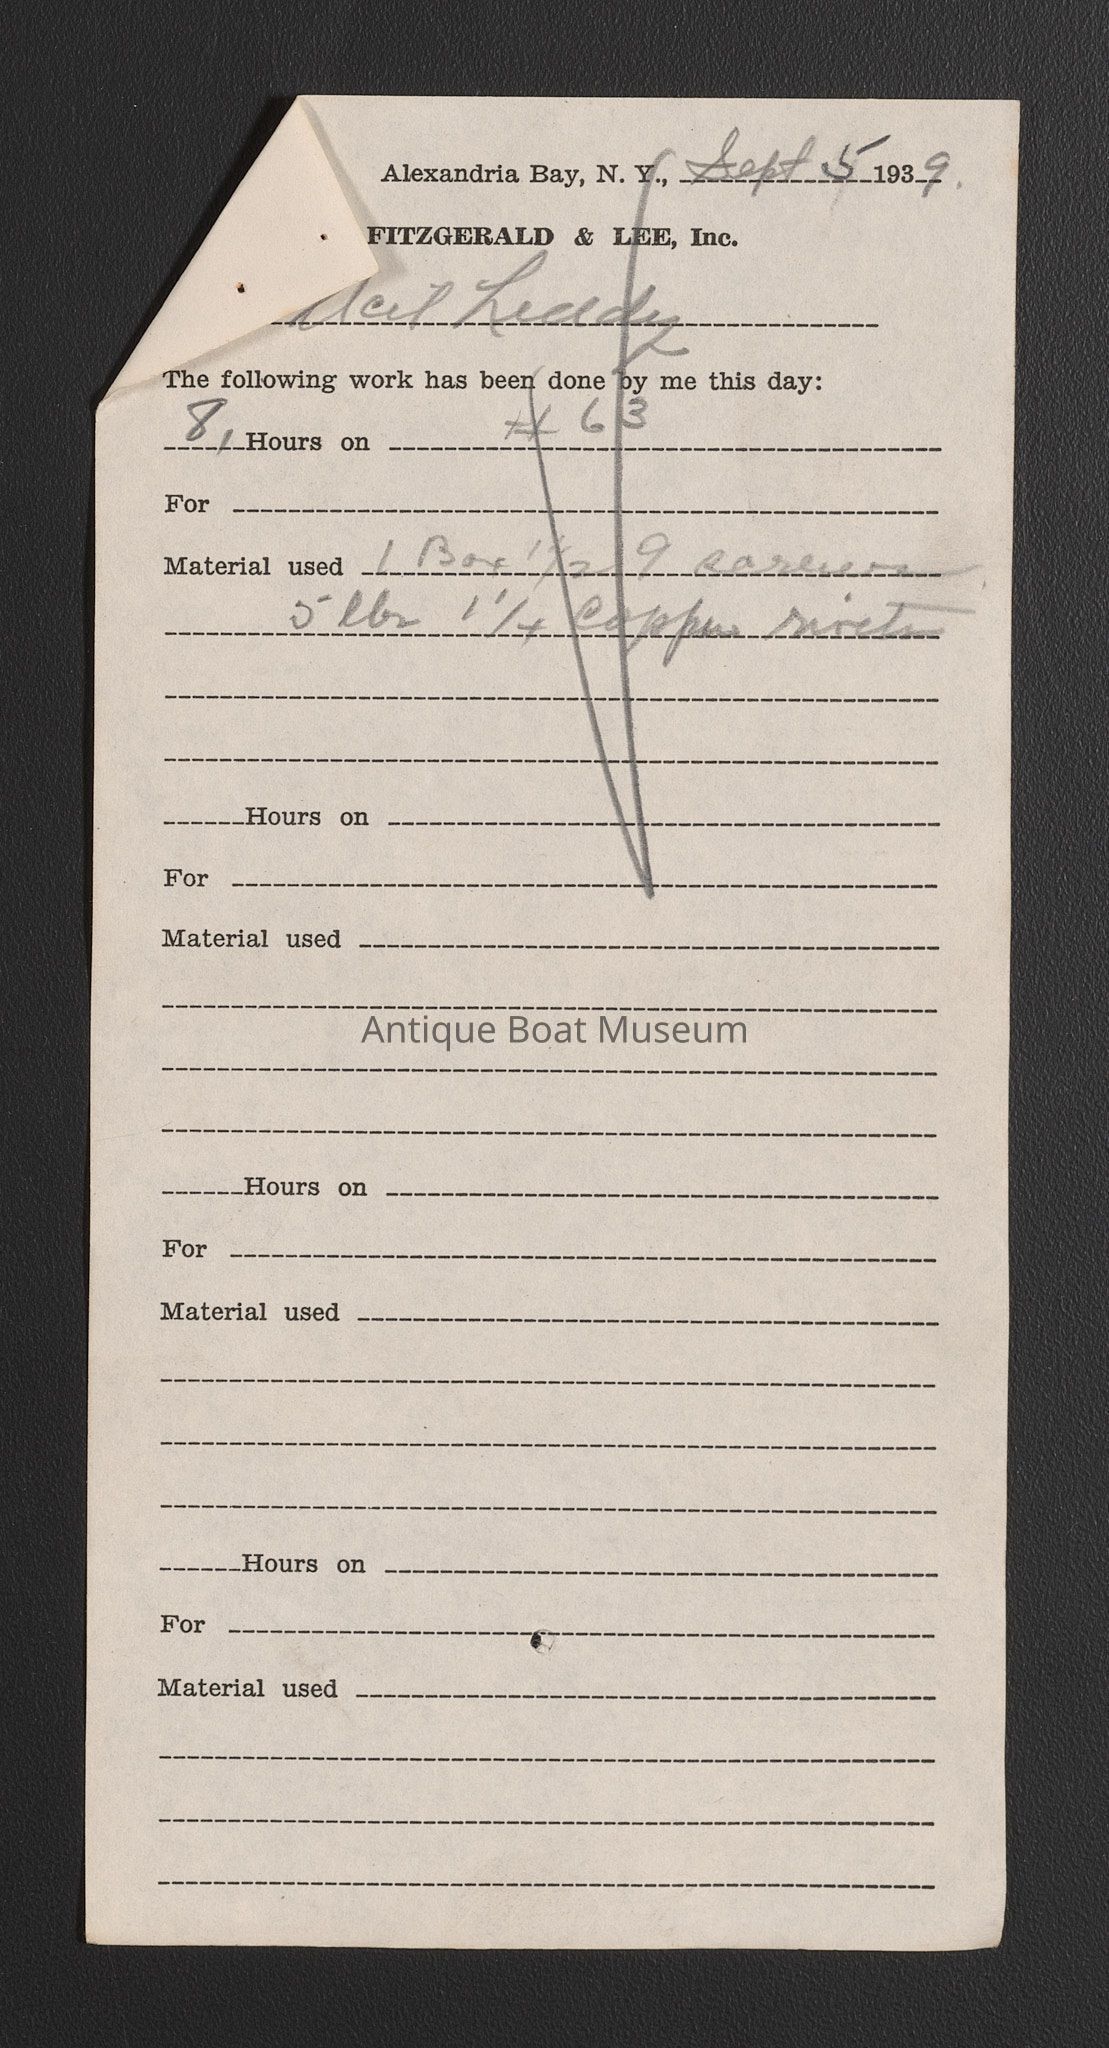 Alexandria Bay, N. Y., Sept 5 1939.
FITZGERALD & LEE, Inc.
Leddy
The following work has been done by me this day:
8, Hours on # 63
For
Material used 1 Box 1 1/2 9
5 lbs 1 1/4 Copper rivets
Hours on
For
Material used
Antique Boat Museum
Hours on
For
Material used
Hours on
For
Material used